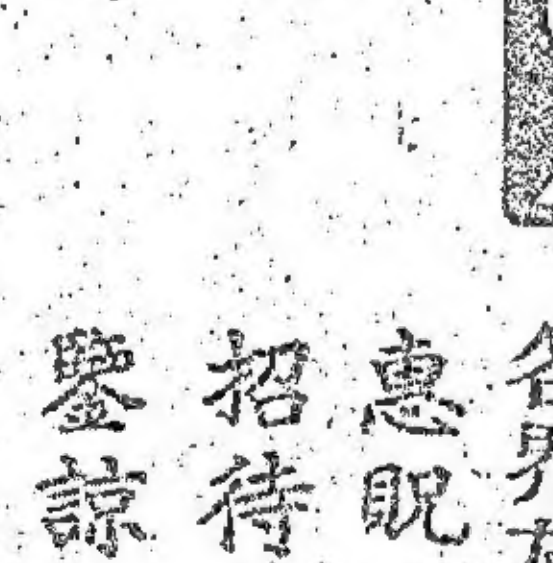 惠貺
招待
鑒諒